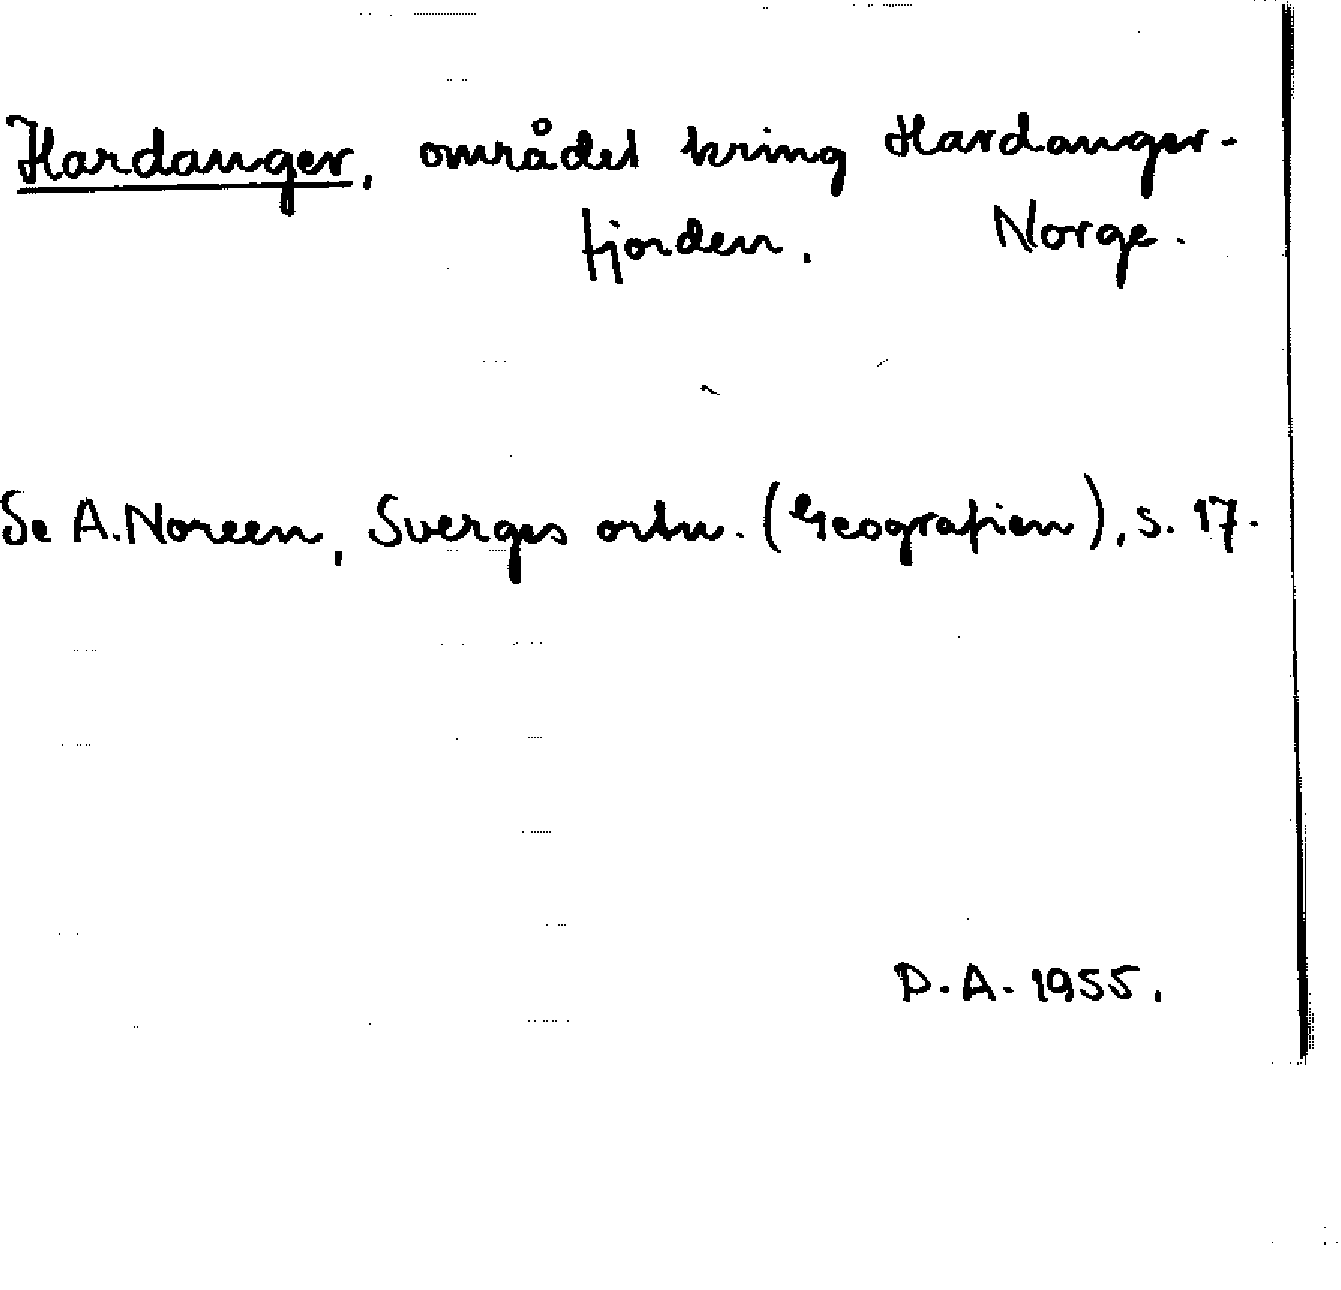 Hardanger, området kring Hardanger-
fjorden. Norge.
Se A. Noreen, Sverges ortn. (Geografien), s. 17.
D.A. 1955.